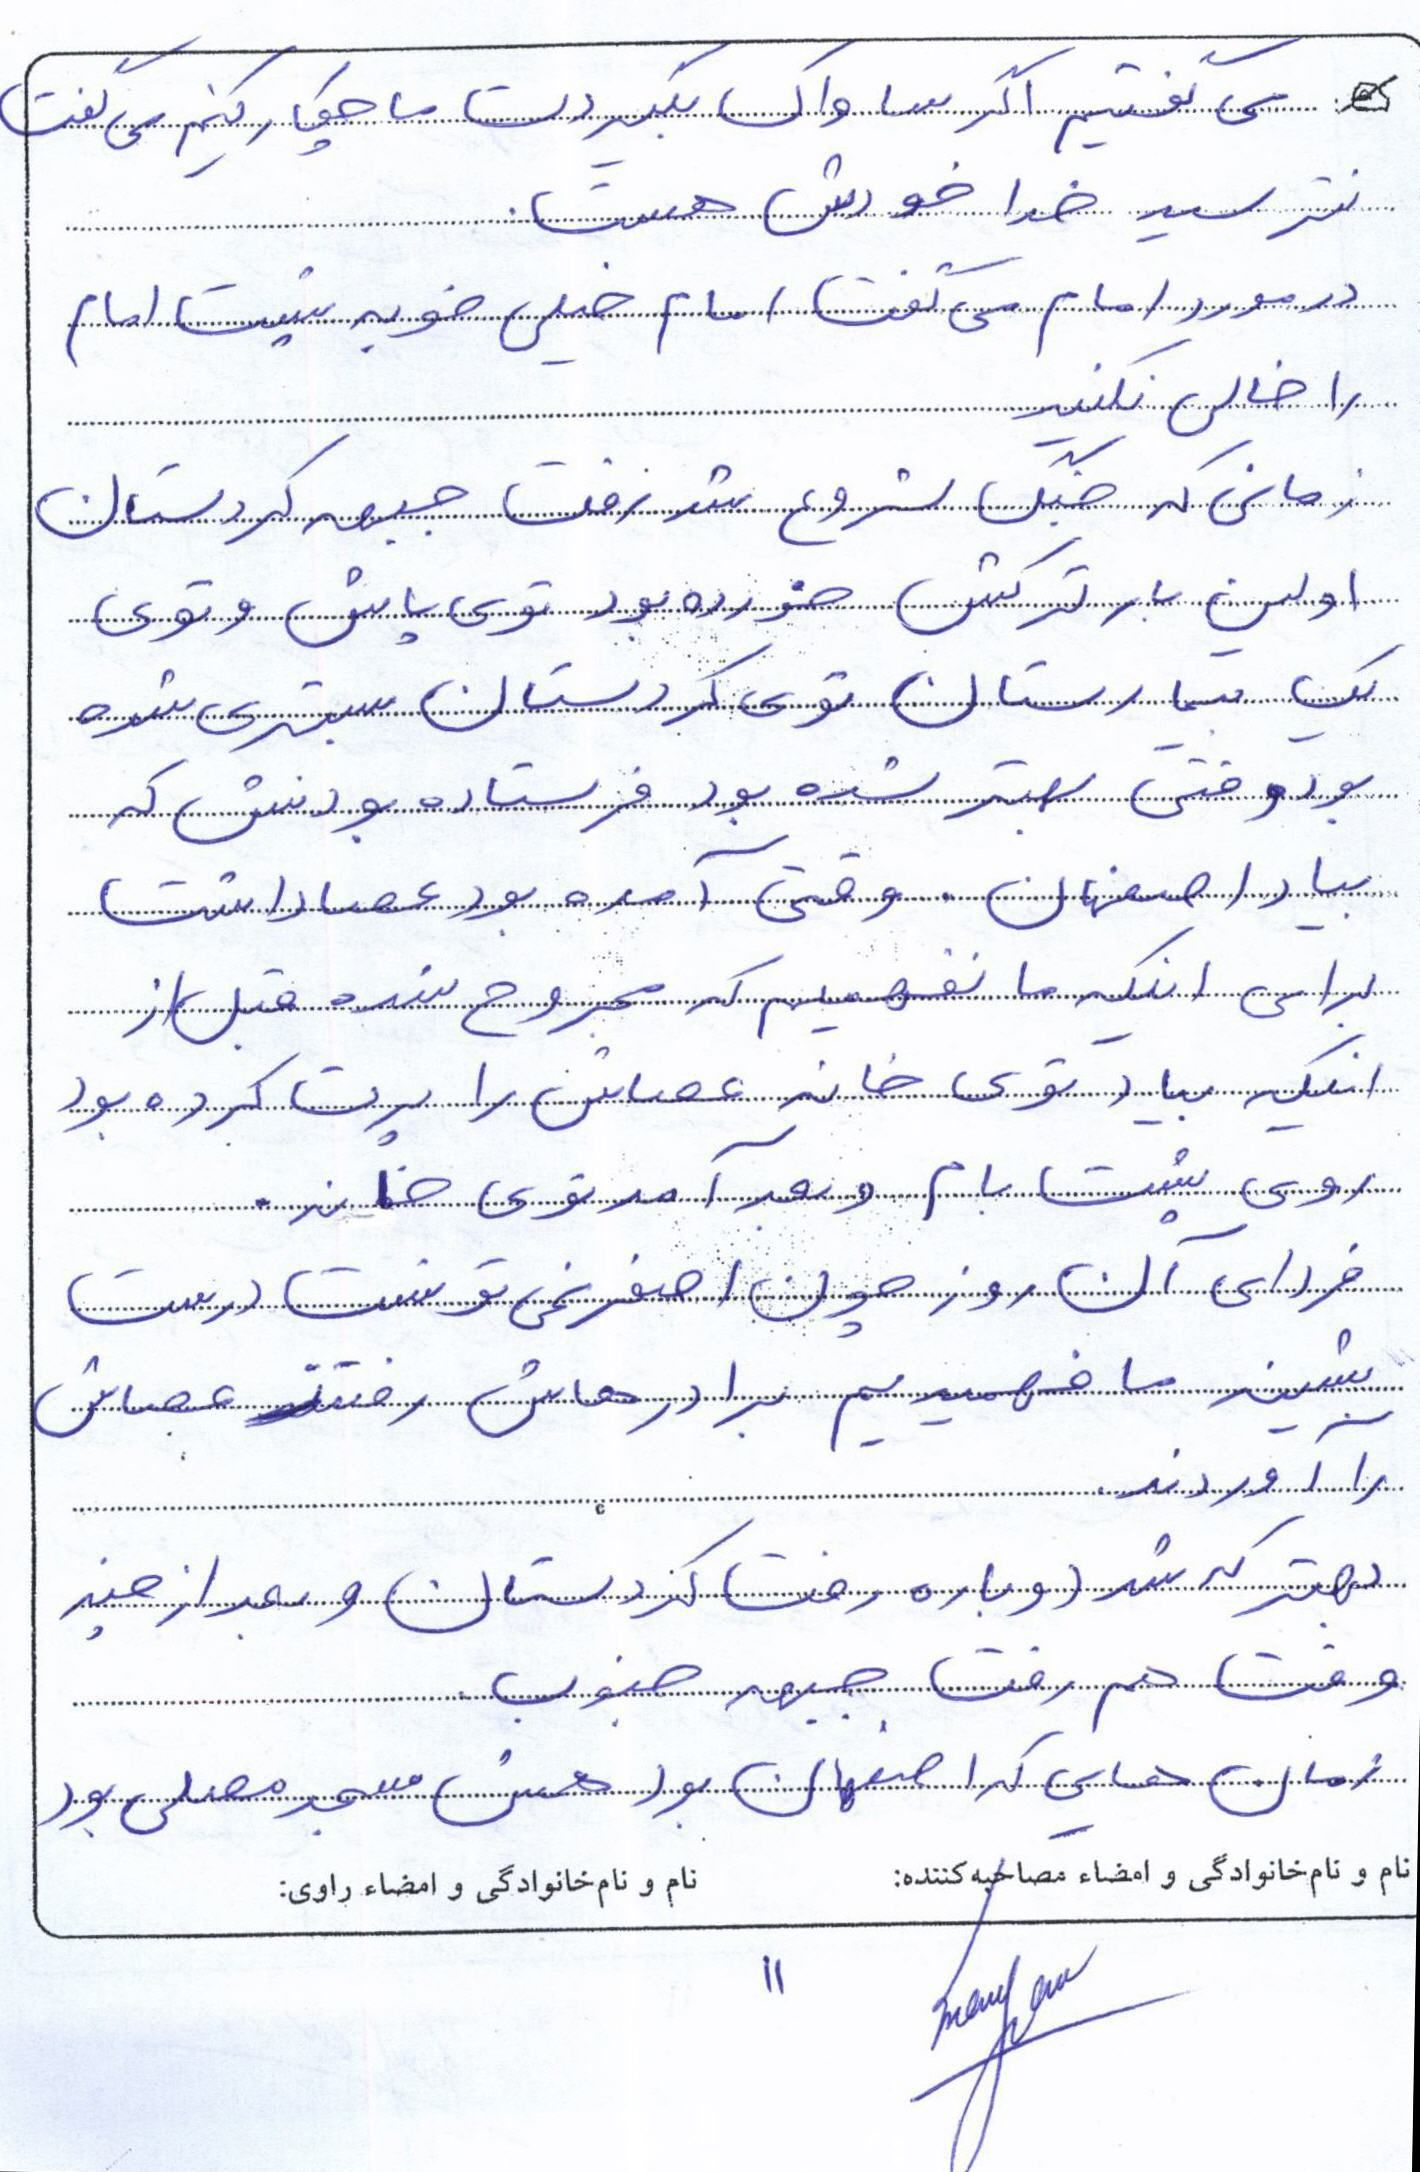 می گفتیم اگر ساواک بگیردت ما چکار کنیم می گفت
نترسید خدا خودش هست.
در مورد امام می گفت امام خیلی خوبه پشت امام
را خالی نکنید
زمانی که جنگ شروع شد رفت جبهه کردستان
اولین بار ترکش خورده بود توی پاش و توی
یک بیمارستان توی کردستان بستری شده
بود وقتی بهتر شده بود فرستاده بودنش که
بیاد اصفهان. وقتی آمده بود عصا داشت
برای اینکه ما نفهمیم که مجروح شده قبل از
اینکه بیاد توی خانه عصاش را پرت کرده بود
روی پشت بام و بعد آمد توی خانه.
فردای آن روز چون اصغر نمی تونست درست
بشیند ما فهمیدیم برادرهاش رفتند عصاش
را آوردند.
بهتر که شد دوباره رفت کردستان و بعد از چند
وقت هم رفت جبهه جنوب.
زمان هایی که اصفهان بود همش مسجد مصلی بود
نام و نام‌خانوادگی و امضاء مصاحبه‌کننده:
نام و نام‌خانوادگی و امضاء راوی:
۱۱